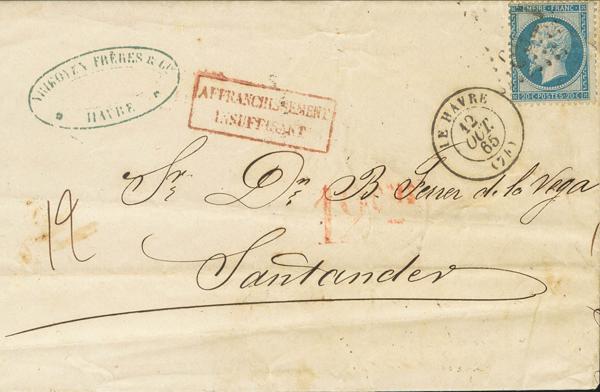 YRIGOYEN FRÈRES & Cie
HAVRE
AFFRANCHISSEMENT
INSUFFISANT
EMPIRE FRANC
20 C POSTES 20 C
LE HAVRE
12
OCT.
65
(74)
Sr. Dn. B Ferrer de la Vega
Santander
12